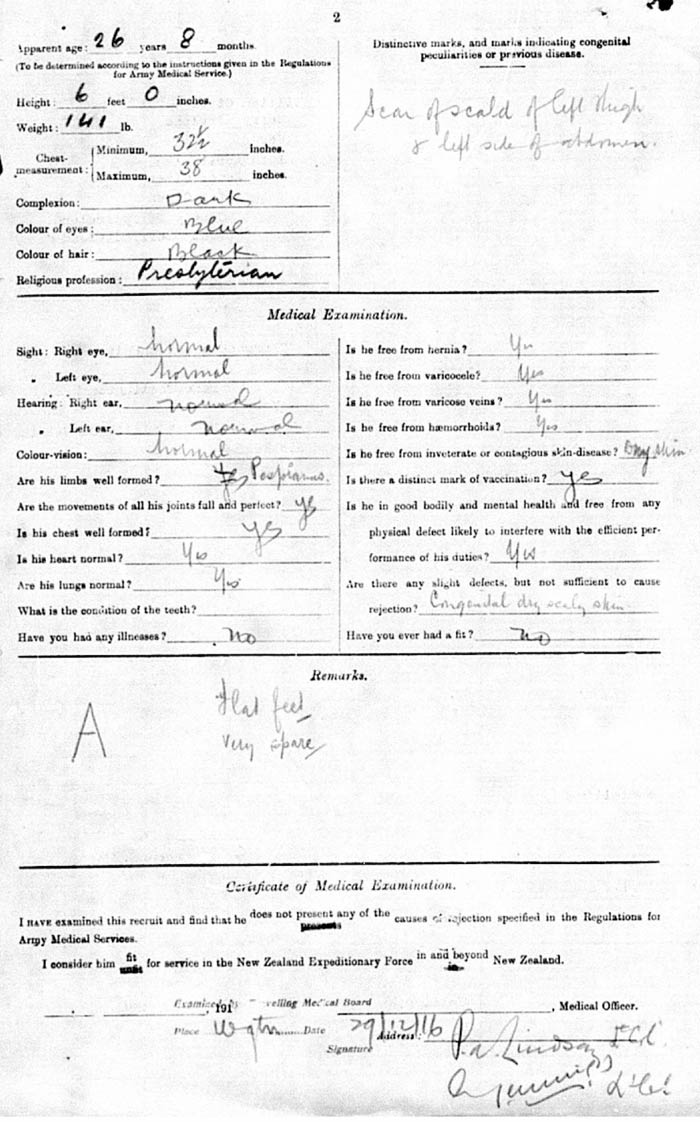 2
Apparent age: 26 years 8 months.
(To be determined according to the instructions given in the Regulations
for Army Medical Service.)
Height: 6 feet 0 inches.
Weight: 141 lb.
Chest-measurement: Minimum, 32½ inches.
Maximum, 38 inches.
Complexion: Dark
Colour of eyes: Blue
Colour of hair: Black
Religious profession: Presbyterian
Distinctive marks, and marks indicating congenital
peculiarities or previous disease.
Scar of scald of left thigh
& left side of abdomen.
Medical Examination.
Sight: Right eye, Normal
" Left eye, Normal
Hearing: Right ear, Normal
" Left ear, Normal
Colour-vision: Normal
Are his limbs well formed? Yes Pes planus.
Are the movements of all his joints full and perfect? Yes
Is his chest well formed? Yes
Is his heart normal? Yes
Are his lungs normal? Yes
What is the condition of the teeth?
Have you had any illnesses? No
Is he free from hernia? Yes
Is he free from varicocele? Yes
Is he free from varicose veins? Yes
Is he free from hæmorrhoids? Yes
Is he free from inveterate or contagious skin-disease? Dry skin
Is there a distinct mark of vaccination? Yes
Is he in good bodily and mental health and free from any
physical defect likely to interfere with the efficient per-
formance of his duties? Yes
Are there any slight defects, but not sufficient to cause
rejection? Congenital dry scaly skin
Have you ever had a fit? No
Remarks.
A
Flat feet
very spare
Certificate of Medical Examination.
I HAVE examined this recruit and find that he does not present any of the causes of rejection specified in the Regulations for
presents
Army Medical Services.
I consider him fit for service in the New Zealand Expeditionary Force in and beyond New Zealand.
unfit in
Examined by Travelling Medical Board
, 191 , Medical Officer.
Place Wgtn Date 29/12/16 Address:
Signature P.A. Lindsay